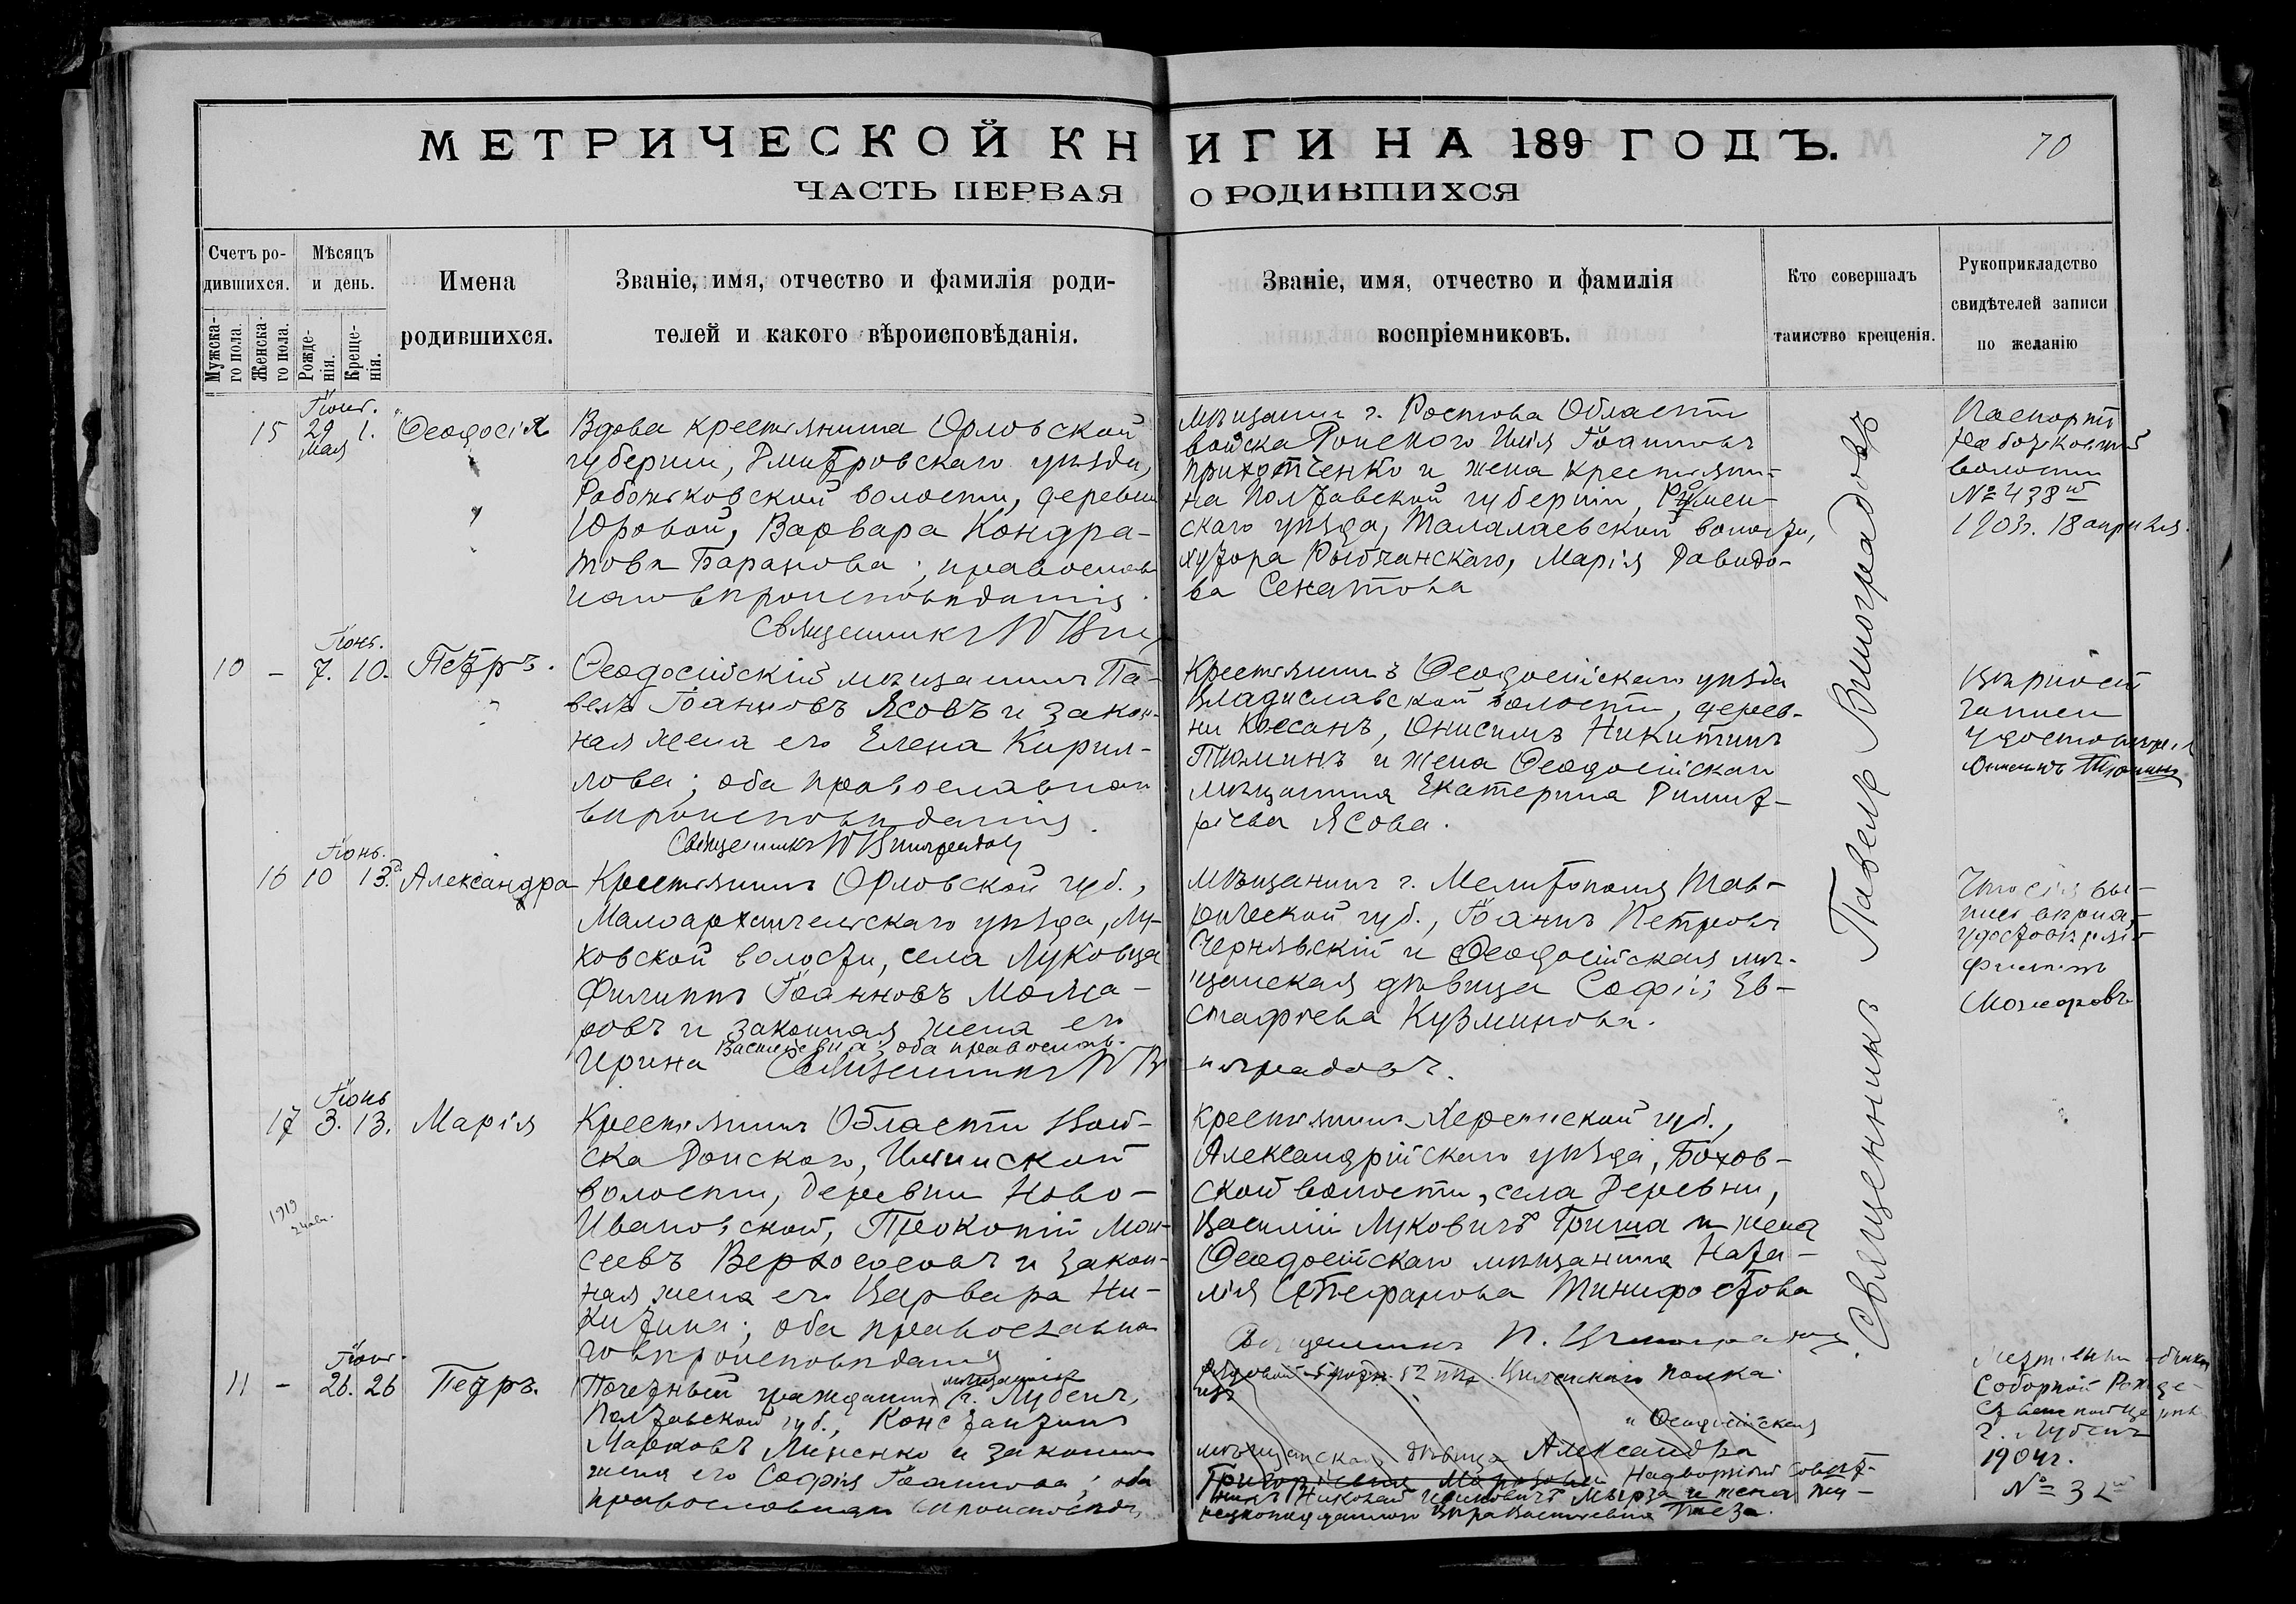 МЕТРИЧЕСКОЙ КНИГИ НА 189 ГОДЪ.
70
ЧАСТЬ ПЕРВАЯ О РОДИВШИХСЯ
Счетъ ро-
дившихся.
Мужска-
го пола.
Женска-
го пола.
Мѣсяцъ
и день.
Рожде-
нія.
Креще-
нія.
Имена
родившихся.
Званіе, имя, отчество и фамилія роди-
телей и какого вѣроисповѣданія.
Званіе, имя, отчество и фамилія
воспріемниковъ.
Кто совершалъ
таинство крещенія.
Рукоприкладство
свидѣтелей записи
по желанію
15
29 1.
Мая
Ѳеодосія
Вдова крестьянина Орловской
губерніи, Дмитровскаго уѣзда,
Работьковской волости, деревни
Юровой, Варвара Кондра-
това Баранова; православ
наго вѣроисповѣданія.
Священникъ
мѣщанинъ г. Ростова Области
войска Донского Илія Іоанновъ
Прихотченко и жена крестьяни-
на Полтавской губерніи, Ромен-
скаго уѣзда, Талалаевской волости,
хутора Рыбчанскаго, Марія Давидо-
ва Сенатова
Паспортъ
волости
№ 438
1903г. 18 апрѣля.
Іюнь.
10 - 7. 10.
Петръ.
Ѳеодосійскій мѣщанинъ Па-
велъ Іоанновъ Ясовъ и закон-
ная жена его Елена Кирил-
лова; оба православнаго
вѣроисповѣданія.
Священникъ П Виноградовъ
Крестьянинъ Ѳеодосійскаго уѣзда
Владиславской волости, дерев-
ни Коссанъ, Онисимъ Никитинъ
Тюминъ и жена Ѳеодосійскаго
мѣщанина Екатерина Димит-
ріева Ясова.
Вѣрность
записи
Онисимъ Тюминъ
Іюнь.
16 10 13.
Александра
Крестьянинъ Орловской губ.,
Малоархангельскаго уѣзда, Лу-
ковской волости, села Луковца
Филиппъ Іоанновъ Можа-
ровъ и законная жена его
Ирина Васильевна; оба православ.
Священникъ П Виноградовъ.
мѣщанинъ г. Мелитополя Тав-
рической губ., Іоаннъ Петровъ
Чернявскій и Ѳеодосійская мѣ-
щанская дѣвица Софія Ев-
стафіева Кузминова.
Филиппъ
Можаровъ
Іюнь
17 3. 13.
Марія
Крестьянинъ Области Вой-
ска Донского,
волости, деревни Ново-
Ивановской, Прокопій Мои-
сеевъ и закон-
ная жена его Варвара Ни-
китина; оба православна
го вѣроисповѣданія
1919
Крестьянинъ Херсонской губ.,
Александрійскаго уѣзда,
ской волости, села Деревни,
Василій Луковичъ Гриша и жена
Ѳеодосійскаго мѣщанина Ната-
лія Стефанова
Священникъ П. Виноградовъ
Іюнь.
11 - 26. 26
Петръ.
Почетный гражданинъ мѣщанинъ г. Лубенъ,
Полтавской губ., Константинъ
Марковъ Линенко и законная
жена его Софія Іоаннова; оба
православнаго вѣроисповѣд
52 полка
и Ѳеодосійская
мѣщанская дѣвица Александра
Надворный Совѣт-
никъ Николай и жена
Священникъ Павелъ Виноградовъ
Соборной
г. Лубенъ
1904г.
№ 32